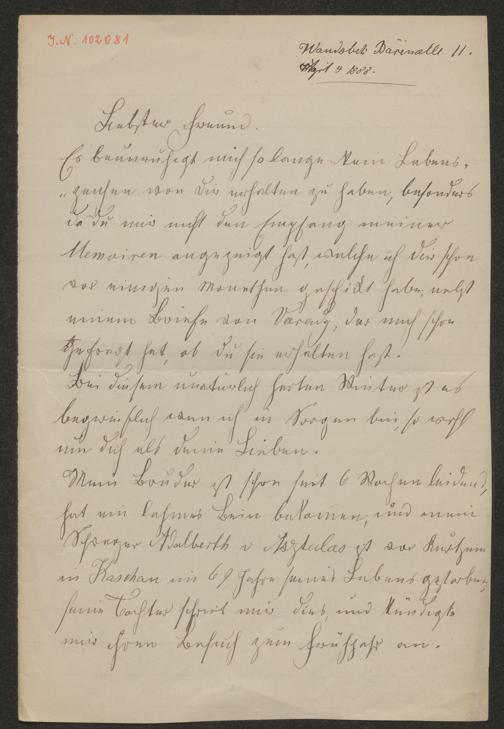 J.N. 102081
Wandsbek Bärenalle 11.
April 4 1888.
Liebster Freund.
Es beunruhigt mich so lange kein Lebens-
„zeichen von Dir erhalten zu haben, besonders
da du mir nicht den Empfang meiner
Memoiren angezeigt hast, welche ich dir schon
vor einigen Monathen geschikt habe, nebst
einem Briefe von Varady, der mich schon
gefragt hat, ob du sie erhalten hast.
Bei diesem unatürlich harten Winter ist es
begreiflich wen ich in Sorgen bin, so wohl
um dich als deine Lieben.
Mein Bruder ist schon seit 6 Wochen leidend,
hat ein lahmes Bein bekommen, und mein
Schwager Adalberth v ist vor kurzem
in Kaschau im 69 Jahre seines Lebens gestorben,
seine Tochter schrieb mir dies, und kündigte
mir ihren Besuch zum Frühjahr an.